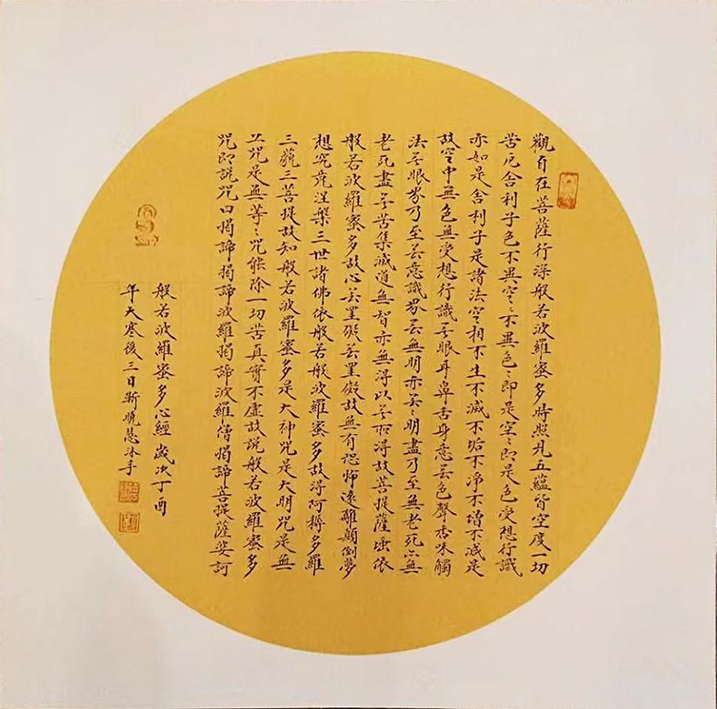 觀自在菩薩行深般若波羅蜜多時照見五蘊皆空度一切
苦厄舍利子色不異空〻不異色〻即是空〻即是色受想行識
亦如是舍利子是諸法空相不生不滅不垢不淨不增不減是
故空中無色無受想行識无眼耳鼻舌身意无色聲香味觸
法无眼界乃至无意識界无無明亦无〻明盡乃至無老死亦無
老死盡无苦集滅道無智亦無得以无所得故菩提薩埵依
般若波羅蜜多故心无罣礙无罣礙故無有恐怖遠離顛倒夢
想究竟涅槃三世諸佛依般若般波羅蜜多故得阿耨多羅
三藐三菩提故知般若波羅蜜多是大神咒是大明咒是無
上咒是無等〻咒能除一切苦真實不虛故說般若波羅蜜多
咒即說咒曰揭諦揭諦波羅揭諦波羅僧揭諦菩提薩婆訶
般若波羅蜜多心經 歲次丁酉
年大寒後三日靳曉慧沐手